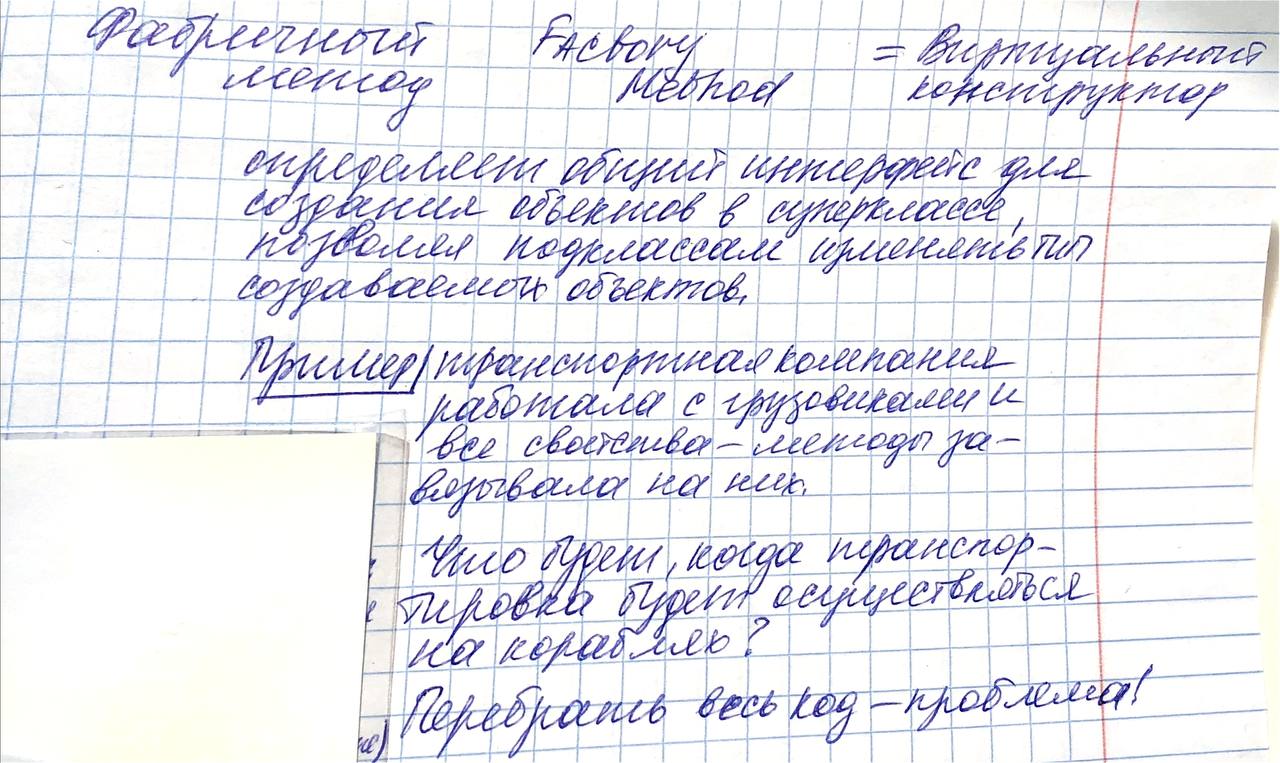 Фабричный Factory = Виртуальный
метод Method конструктор
определяет общий интерфейс для
создания объектов в суперклассе,
позволяя подклассам изменять тип
создаваемых объектов.
Пример/ транспортная компания
работала с грузовиками и
все свойства – методы за-
вязывала на них.
Что будет, когда транспор-
тировка будет осуществляться
на кораблях?
Перебрать весь код – проблема!